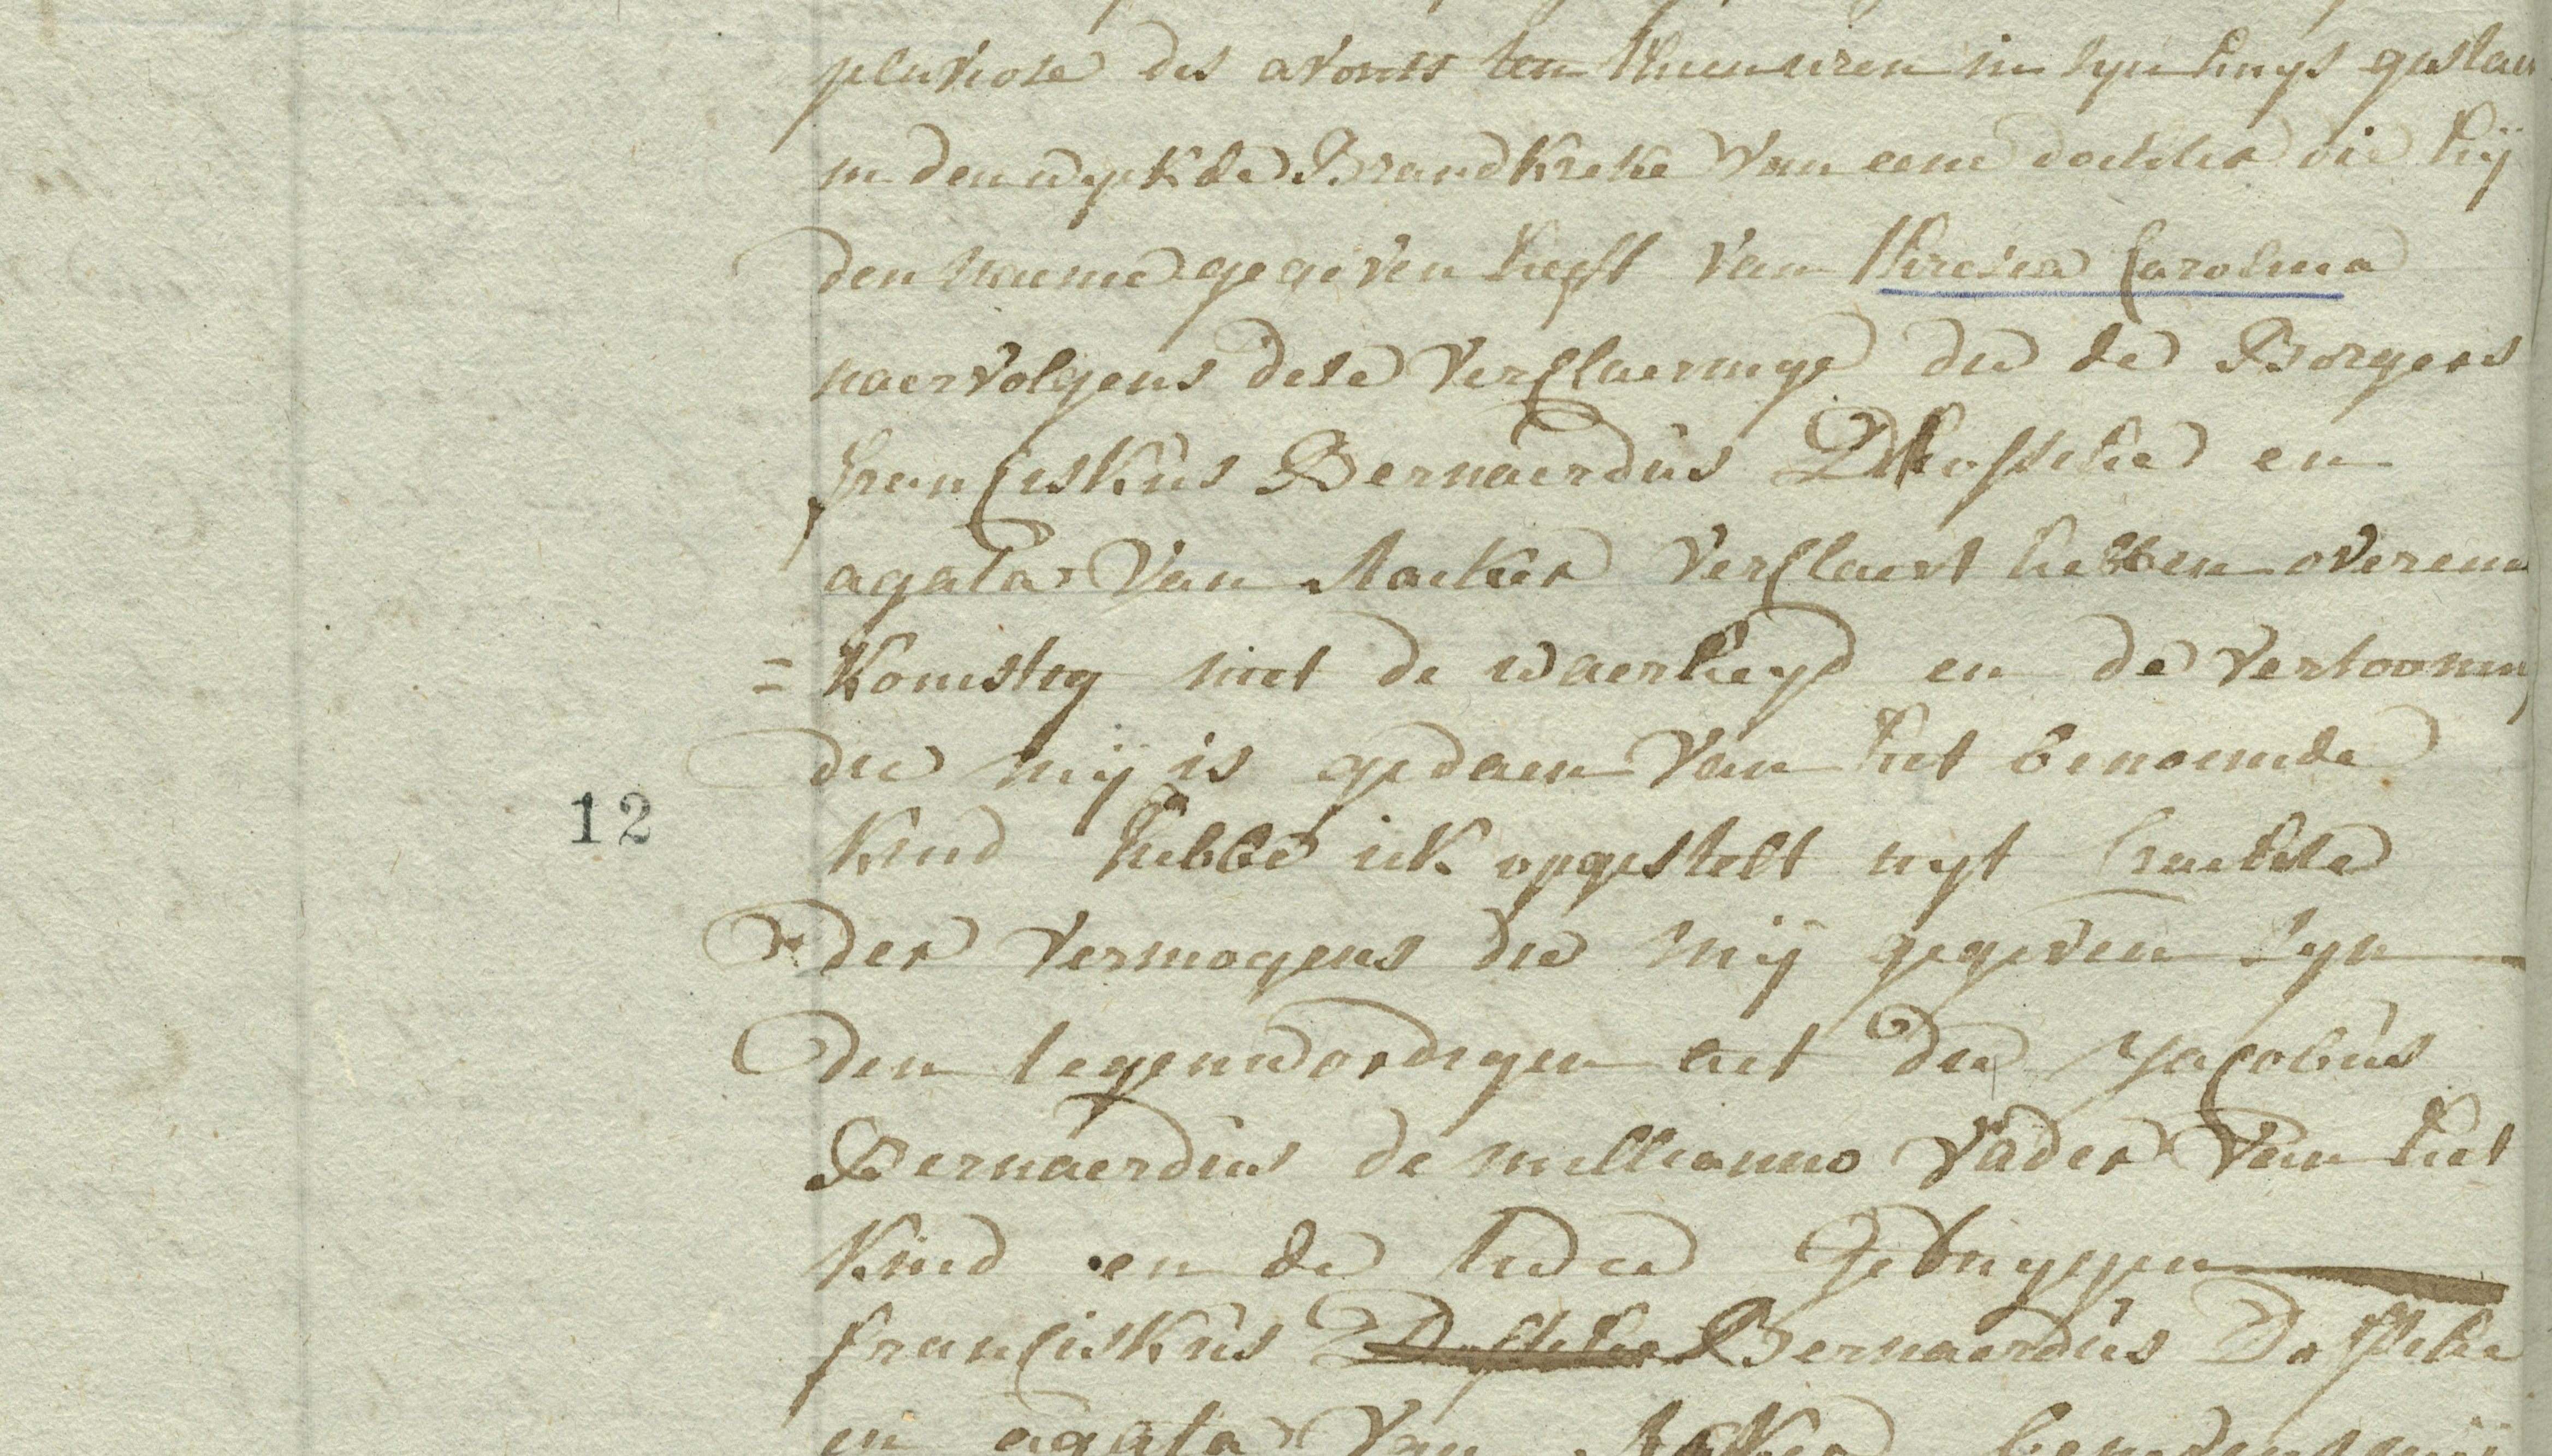 pluviose des avonts ten thien uren in syn huys gestaen
in den wyck de Brandkreke van eene dochter die hij
den naeme gegeven heeft van Theresia Carolina
naervolgens dese verclaeringe die de Borgers
franciskus Bernaerdus en
agata van verclaert hebben overeen
= komstig met de waerheyd en de vertooning
die mij is gedaen van het benoemde
12
kind hebbe ick opgestelt uyt crachte
der vermogens die mij gegeven syn
den tegenwordigen act die Jacobus
Bernaerdus de milliano vader van het
kind en de twee getuygen
franciskus Bernaerdus
en agata van